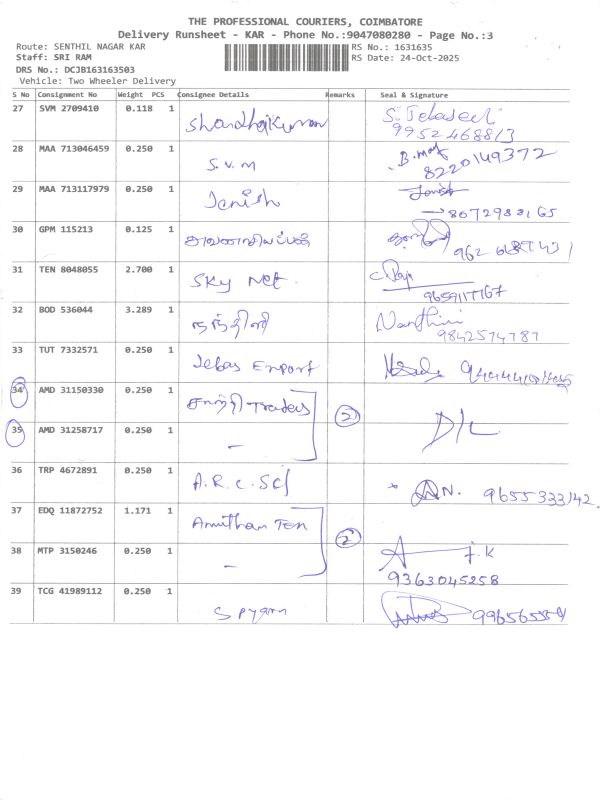 THE PROFESSIONAL COURIERS, COIMBATORE
Delivery Runsheet - KAR - Phone No.:9047080280 - Page No.:3
Route: SENTHIL NAGAR KAR RS No.: 1631635
Staff: SRI RAM RS Date: 24-Oct-2025
DRS No.: DCJB163163503
Vehicle: Two Wheeler Delivery
S No Consignment No Weight PCS Consignee Details Remarks Seal & Signature
27 SVM 2709410 0.118 1
9952468813
28 MAA 713046459 0.250 1
S.V.M 8220149372
29 MAA 713117979 0.250 1
Janish
30 GPM 115213 0.125 1
31 TEN 8048055 2.700 1
Sky Net
32 BOD 536044 3.289 1
நந்தினி Nanthini
9842574787
33 TUT 7332571 0.250 1
Jebas Export
34 AMD 31150330 0.250 1
Traders 2 D/L
35 AMD 31258717 0.250 1
-
36 TRP 4672891 0.250 1
A.R.C. 9655333142
37 EDQ 11872752 1.171 1
Amutham Tex 2
38 MTP 3150246 0.250 1
- 9363045258
39 TCG 41989112 0.250 1